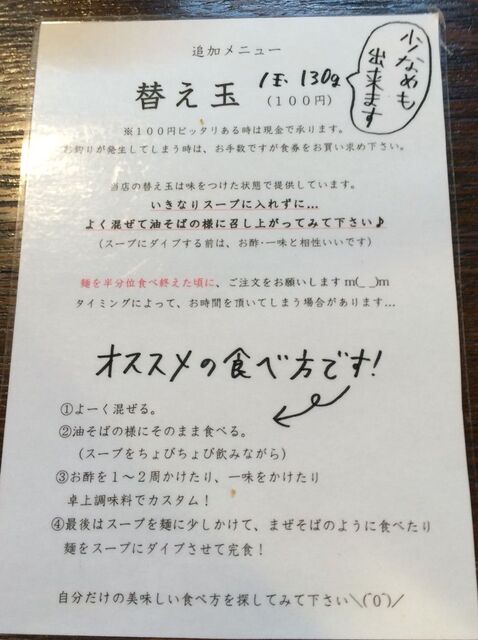 追加メニュー
替え玉 1玉 130g
(100円)
少なめも
出来ます
※100円ピッタリある時は現金で承ります。
お釣りが発生してしまう時は、お手数ですが食券をお買い求め下さい。
当店の替え玉は味をつけた状態で提供しています。
いきなりスープに入れずに…
よく混ぜて油そばの様に召し上がってみて下さい♪
(スープにダイブする前は、お酢・一味と相性いいです)
麺を半分位食べ終えた頃に、ご注文をお願いします m(_ _)m
タイミングによって、お時間を頂いてしまう場合があります…
オススメの食べ方です!
①よーく混ぜる。
②油そばの様にそのまま食べる。
(スープをちょびちょび飲みながら)
③お酢を1～2周かけたり、一味をかけたり
卓上調味料でカスタム!
④最後はスープを麺に少しかけて、まぜそばのように食べたり
麺をスープにダイブさせて完食!
自分だけの美味しい食べ方を探してみて下さい＼(^0^)／